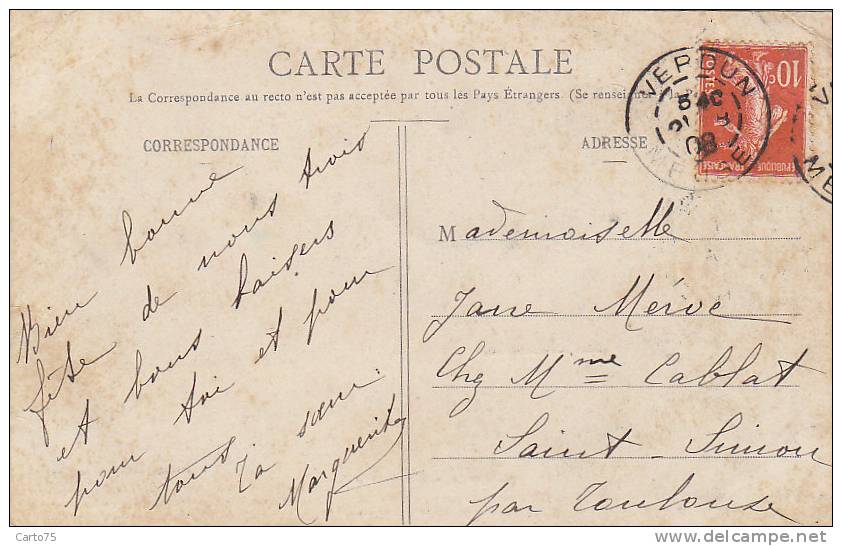 CARTE POSTALE
La Correspondance au recto n'est pas acceptée par tous les Pays Étrangers. (Se renseigner
CORRESPONDANCE
ADRESSE
10c
POSTES
RÉPUBLIQUE FRANÇAISE
VERDUN
08
MEUSE
Bien bonne
fête de nous trois
et bons baisers
pour toi et pour
tous. Ta sœur
Marguerite
Mademoiselle
Jane Mérve
Chez Mme Cablat
Saint-Simon
par Toulouse
Carto75
www.delcampe.net